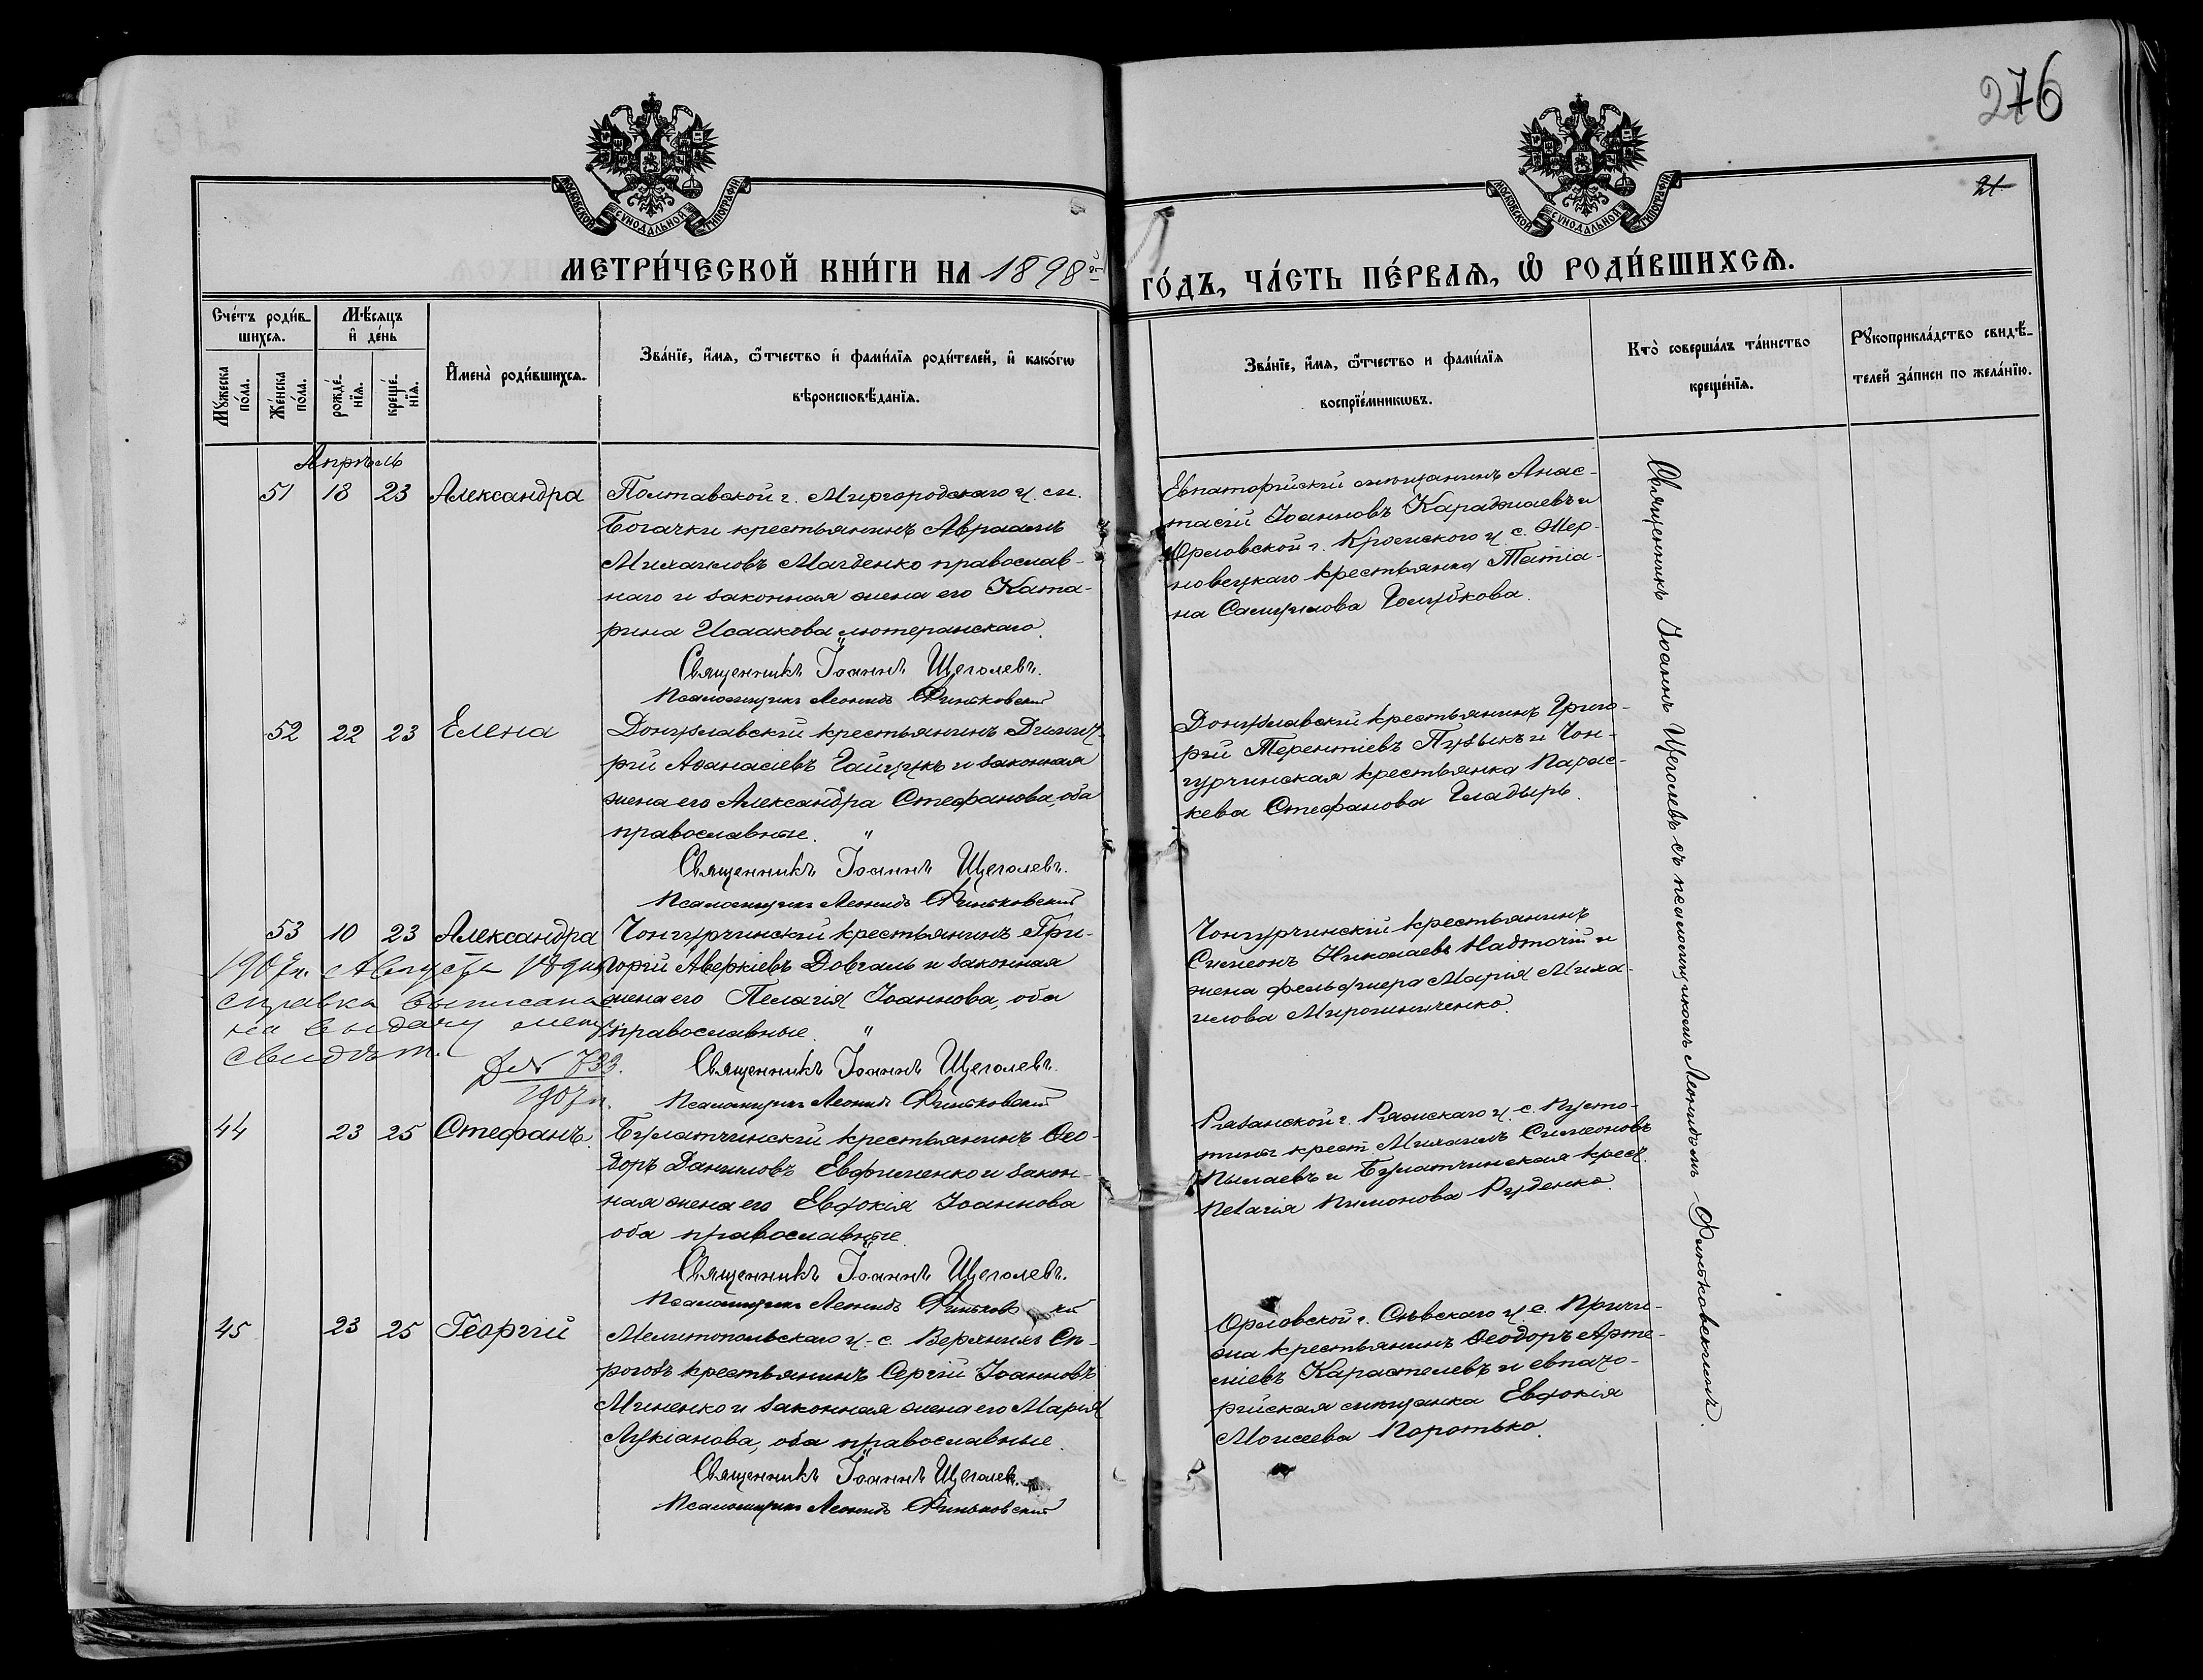 276
21
МОСКОВСКОЙ СѴНОДАЛЬНОЙ ТИПОГРАФІИ
МОСКОВСКОЙ СѴНОДАЛЬНОЙ ТИПОГРАФІИ
МЕТРИ́ЧЕСКОЙ КНИ́ГИ НА 1898 го́дъ, ЧА́СТЬ ПЕ́РВАѦ, Ѡ҆ РОДИ́ВШИХСѦ.
Сче́тъ роди́в-
шихсѧ.
Мꙋ́жеска по́ла.
Же́нска по́ла.
Мѣ́сѧцъ
и҆ де́нь
рожде́-
нїѧ.
креще́-
нїѧ.
И҆мена̀ роди́вшихсѧ.
Зва́нїе, и҆́мѧ, ѻ҆́тчество и҆ фами́лїѧ роди́телей, и҆ како́гѡ
вѣроисповѣ́данїѧ.
Зва́нїе, и҆́мѧ, ѻ҆́тчество и фами́лїѧ
воспрїе́мникѡвъ.
Кто̀ соверша́лъ та́инство
креще́нїѧ.
Рꙋкоприкла́дство свидѣ́-
телей за́писи по жела́нїю.
Апрѣль
51 18 23 Александра
Полтавской г. Миргородскаго у. м.
Богачки крестьянинъ Авраамъ
Михаиловъ Магденко православ-
наго и законная жена его Ката-
рина Исаакова лютеранскаго.
Священникъ Іоаннъ Щеголевъ.
Псаломщикъ Леонидъ Финьковскій
Евпаторійскій мѣщанинъ Анас-
тасій Іоанновъ Караджаевъ и
Орловской г. Кромскаго у. с. Шер-
новецкаго крестьянка Татіа-
на Самуилова Голубкова.
52 22 23 Елена
Донузлавскій крестьянинъ Димит-
рій Аѳанасіевъ Гайдукъ и законная
жена его Александра Стефанова, оба
православные. "
Священникъ Іоаннъ Щеголевъ.
Псаломщикъ Леонидъ Финьковскій
Донузлавскій крестьянинъ Григо-
рій Терентіевъ Пузыкъ и Чон-
гурчинская крестьянка Парас-
кева Стефанова Гладырь.
53 10 23 Александра
Чонгурчинскій крестьянинъ Гри-
горій Аверкіевъ Довгаль и законная
жена его Пелагія Іоаннова, оба
православные. "
Священникъ Іоаннъ Щеголевъ.
Псаломщикъ Леонидъ Финьковскій
1907 г. Августа 18 дня
справка выписана
на выдачу метр.
свидѣт.
Д № 733.
1907 г.
Чонгурчинскій крестьянинъ
Симеонъ Николаевъ Надточій и
жена фельдшера Марія Миха-
илова Мирошниченко.
44 23 25 Стефанъ.
Булатчинскій крестьянинъ Ѳео-
доръ Даниловъ Евфименко и закон-
ная жена его Евдокія Іоаннова
оба православные.
Священникъ Іоаннъ Щеголевъ.
Псаломщикъ Леонидъ Финьков кій
Рязанской г. Ряжскаго у. с. Пусто-
тины крест. Михаилъ Симеоновъ
Пылаевъ и Булатчинская крест.
Пелагія Пимонова Руденко.
45 23 25 Георгій
Мелитопольскаго у. с. Верхнихъ Сѣ-
рогозъ крестьянинъ Сергій Іоанновъ
Миненко и законная жена его Марія
Лукіанова, оба православные.
Священникъ Іоаннъ Щеголевъ.
Псаломщикъ Леонидъ Финьковскій
Орловской г. Сѣвскаго у. с. Причи-
жа крестьянинъ Ѳеодоръ Арте-
міевъ Карастелевъ и евпато-
рійская мѣщанка Евдокія
Моисеева Коротько.
Священникъ Іоаннъ Щеголевъ съ псаломщикомъ Леонидомъ Финьковскимъ.